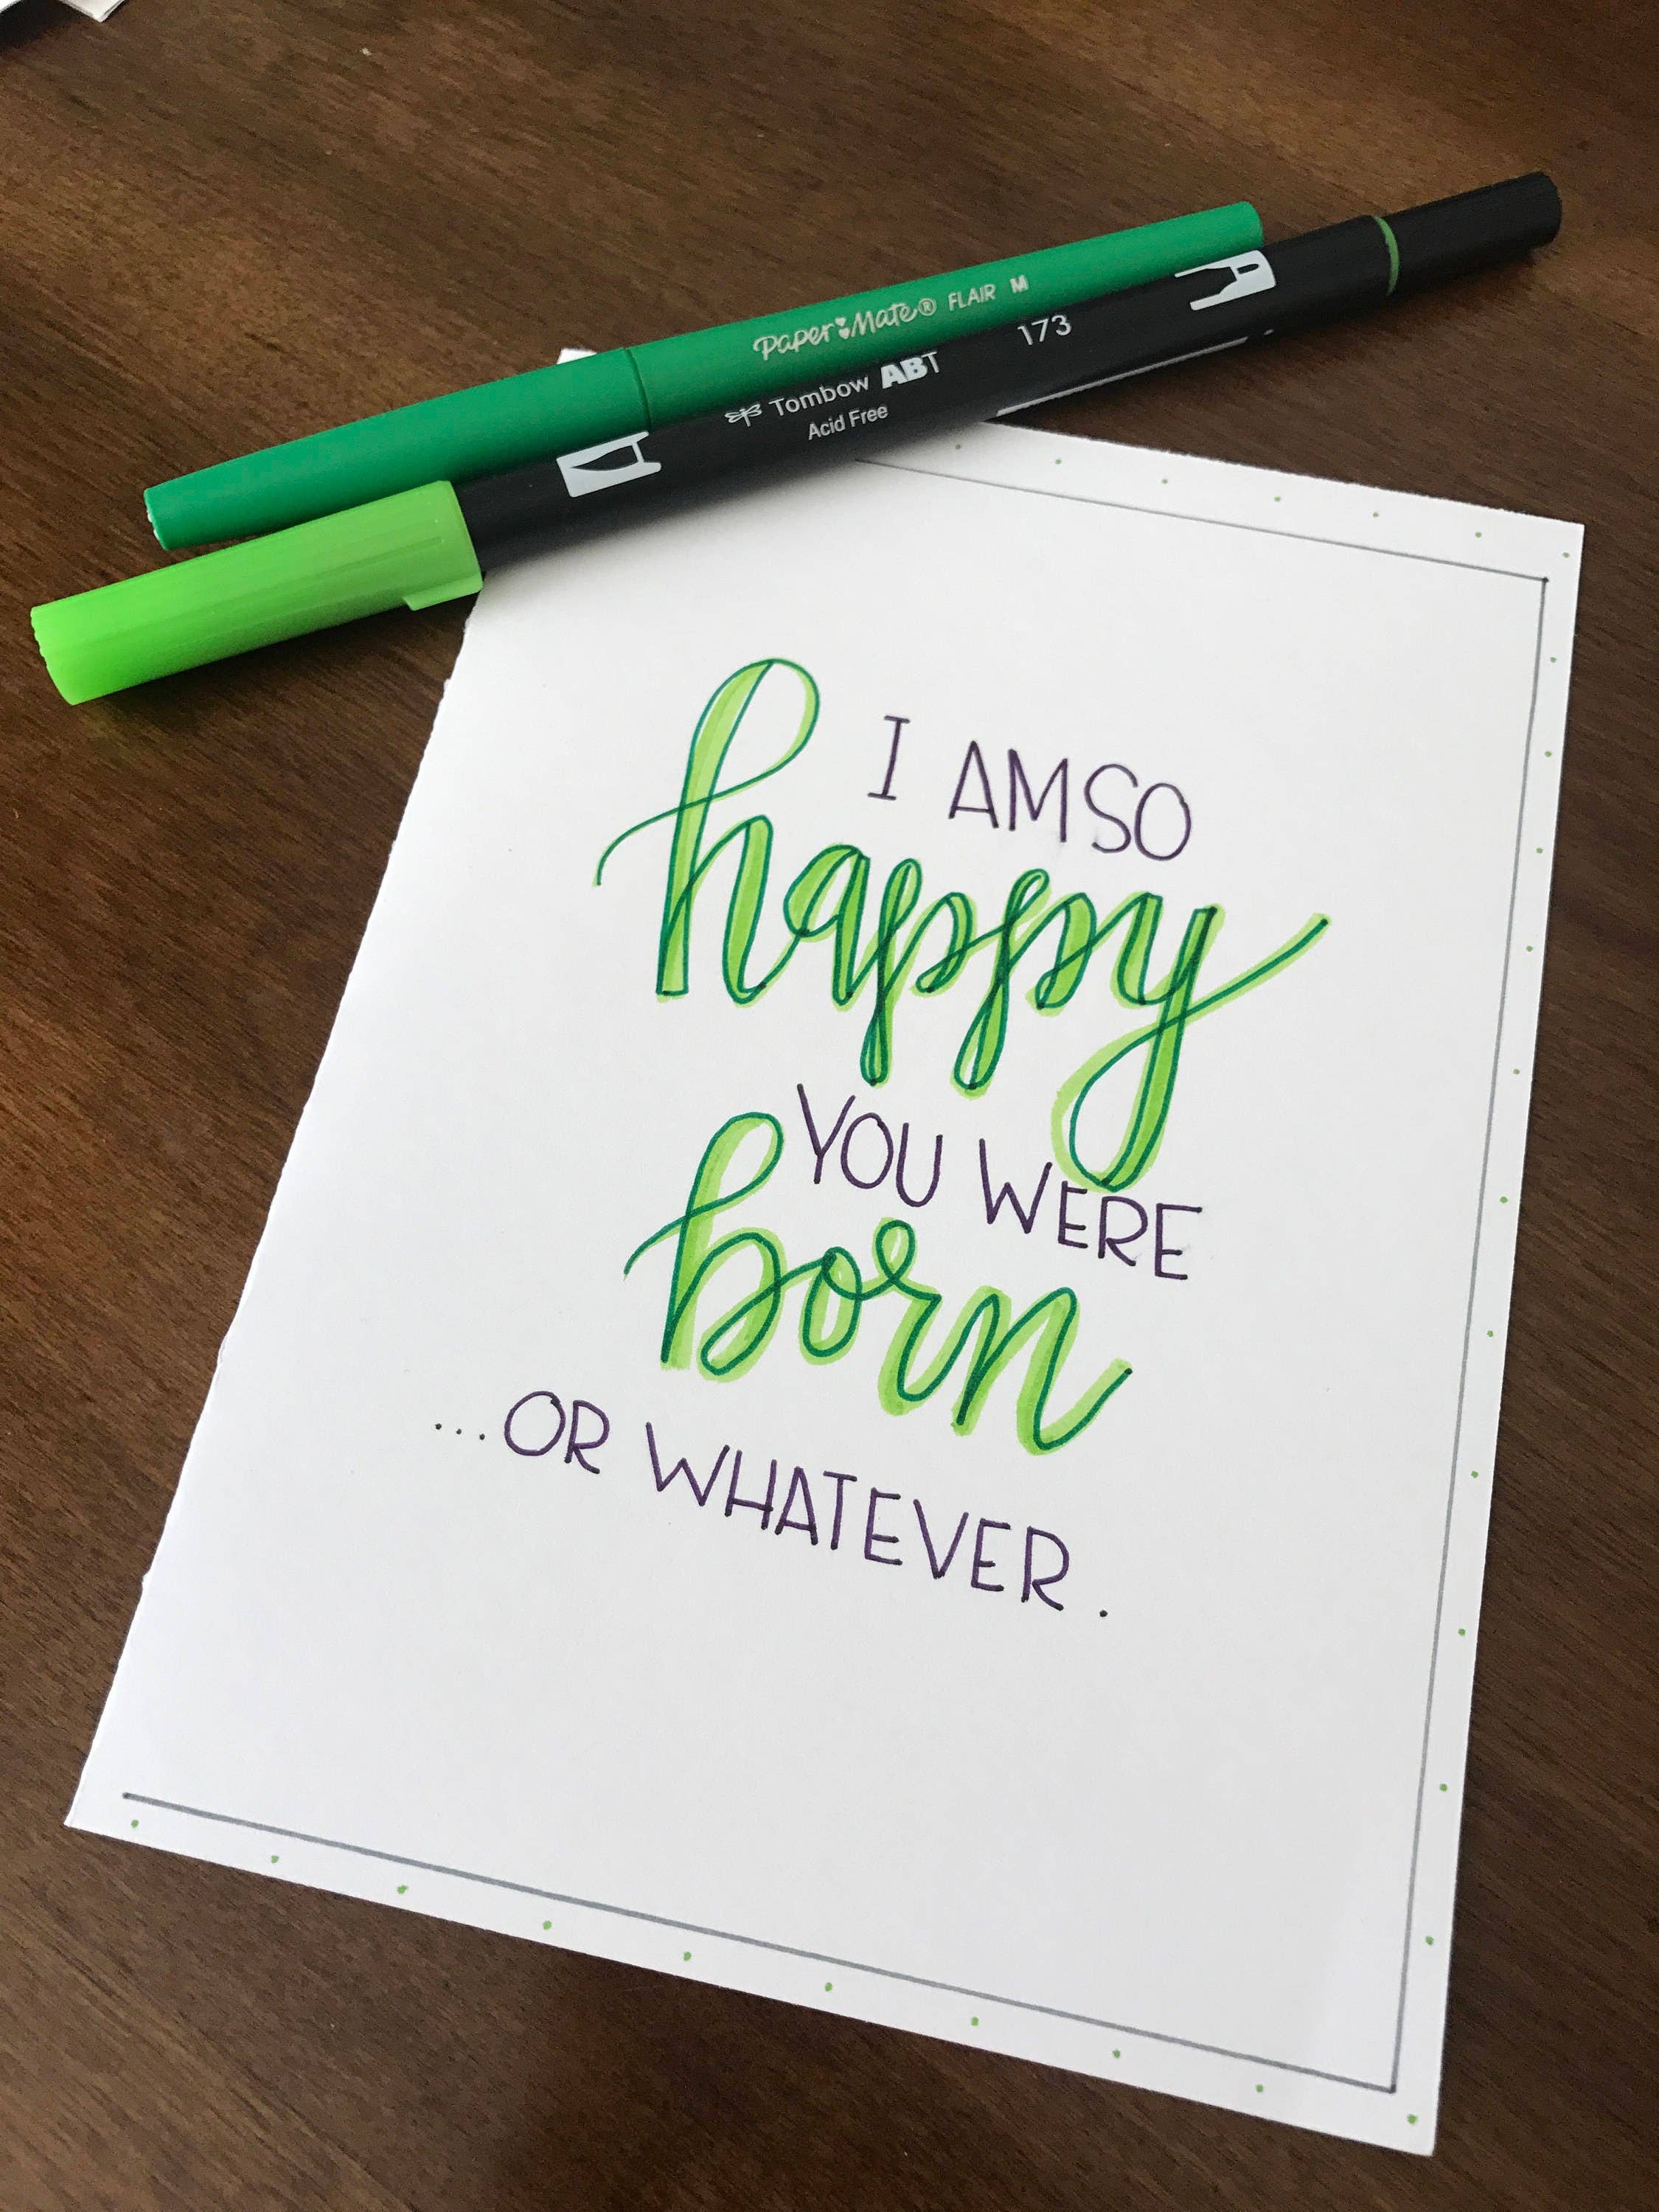 Paper Mate® FLAIR M
Tombow ABT 173
Acid Free
I AM SO
happy
YOU WERE
born
...OR WHATEVER.